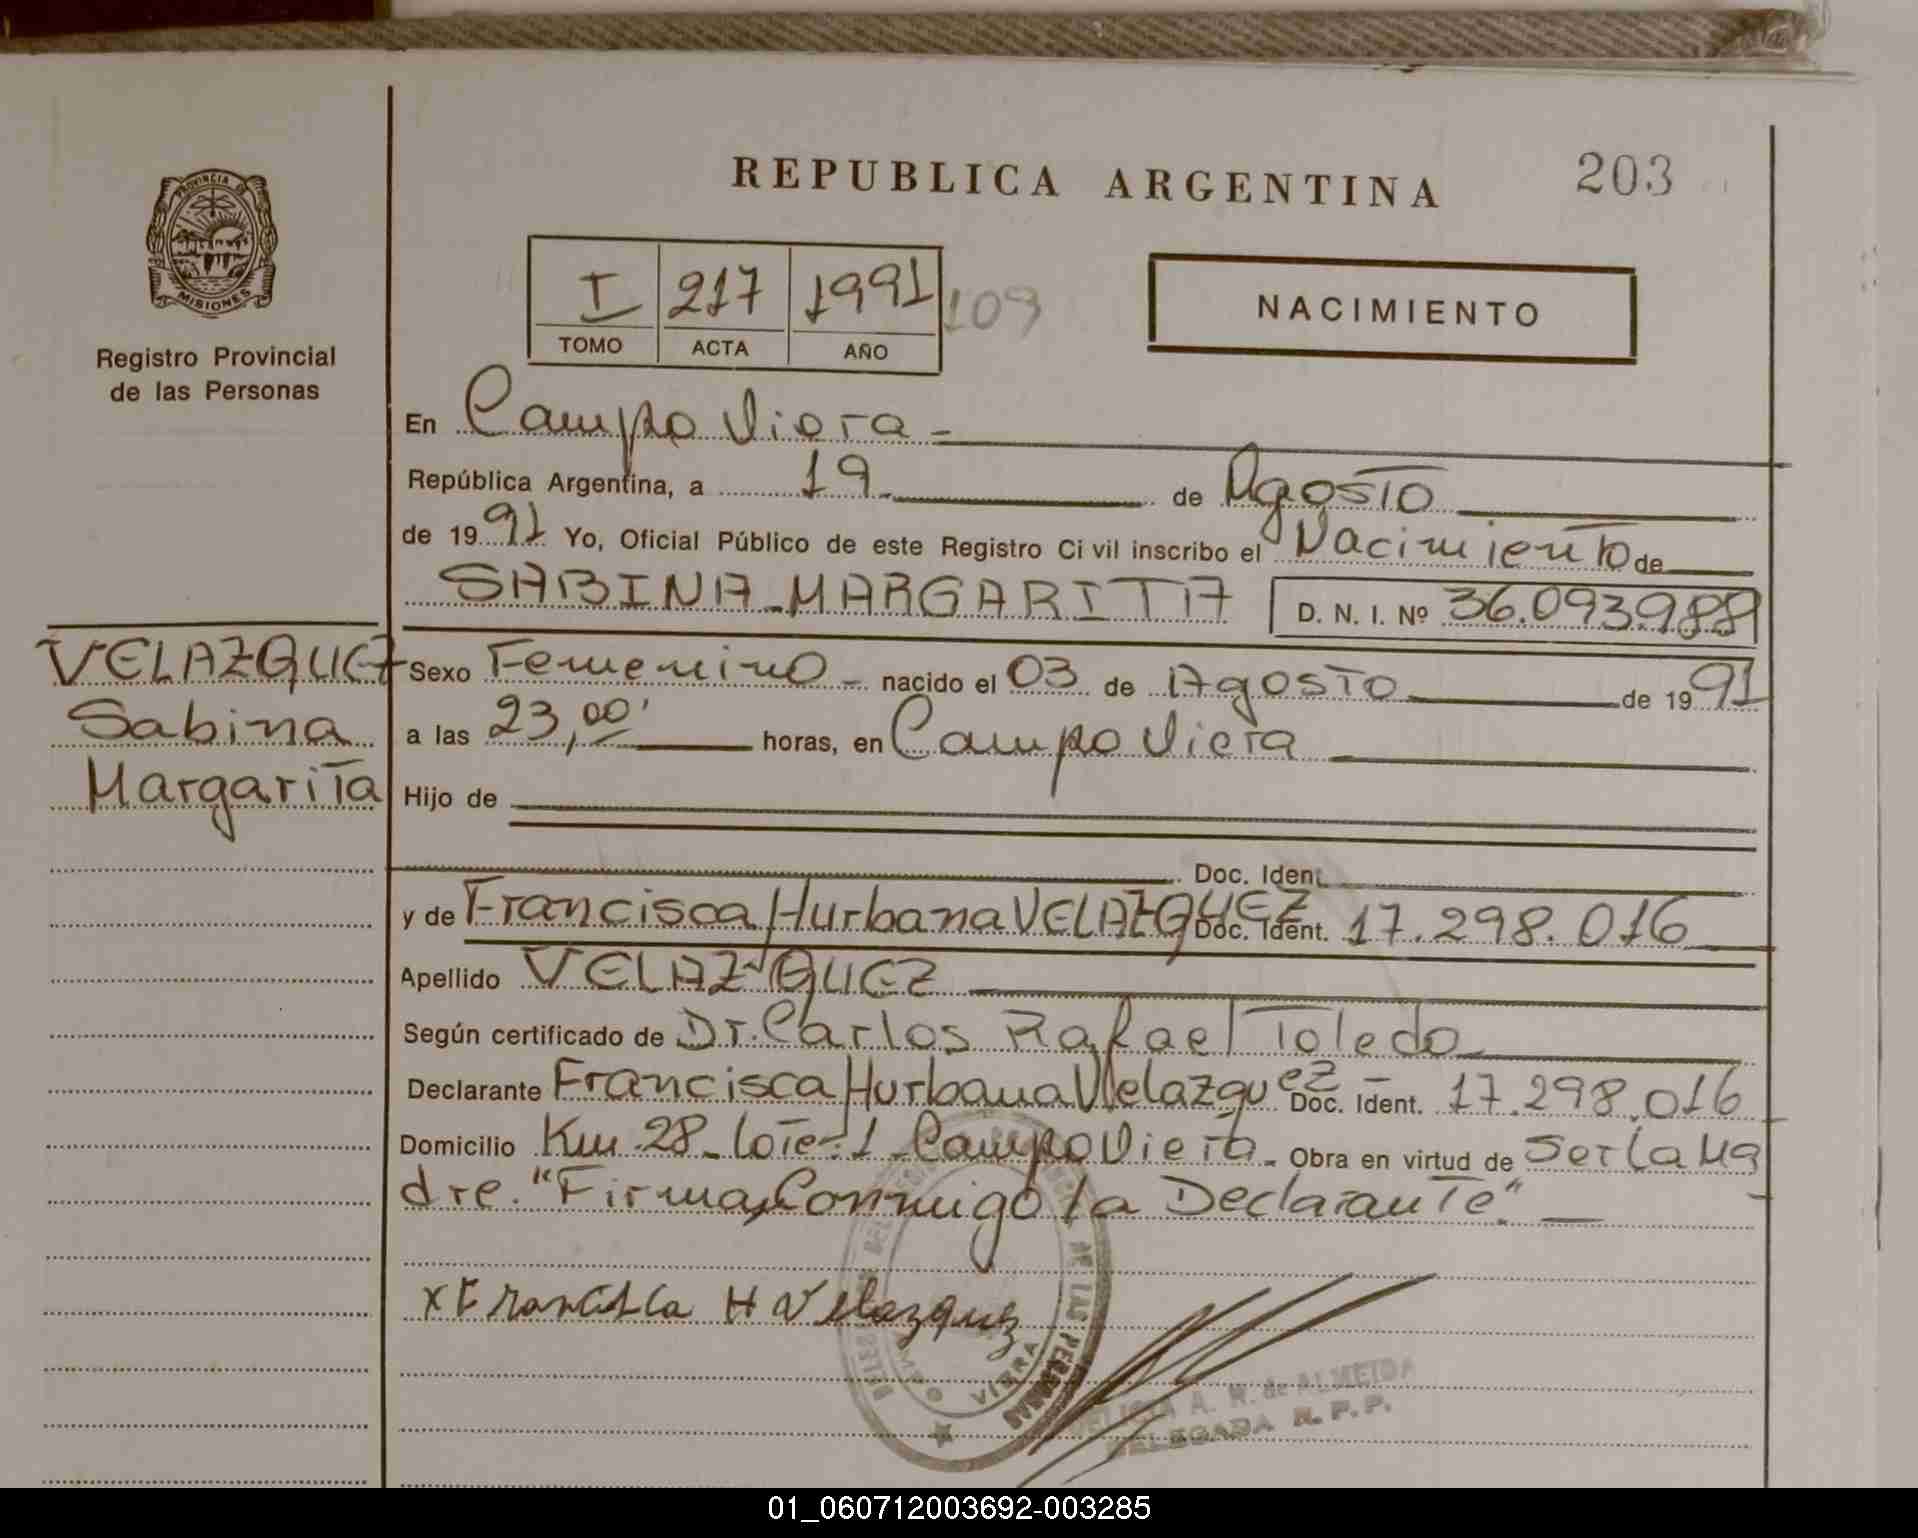 REPUBLICA ARGENTINA
203
PROVINCIA DE
MISIONES
Registro Provincial
de las Personas
I 217 1991 109
TOMO ACTA AÑO
NACIMIENTO
En Campo Viera
República Argentina, a 19 de Agosto
de 1991 Yo, Oficial Público de este Registro Civil inscribo el Nacimiento de
SABINA MARGARITA D. N. I. Nº 36.093.988
VELAZQUEZ
Sabina
Margarita
Sexo Femenino nacido el 03 de Agosto de 1991
a las 23,00' horas, en Campo Viera
Hijo de
Doc. Ident.
y de Francisca Hurbana VELAZQUEZ Doc. Ident. 17.298.016
Apellido VELAZQUEZ
Según certificado de Dr. Carlos Rafael Toledo
Declarante Francisca Hurbana Velazquez Doc. Ident. 17.298.016
Domicilio Km. 28 - lote-1 - Campo Viera - Obra en virtud de Ser la Ma
dre. "Firma Conmigo la Declarante"
x Francisca H Velazquez
DE LAS PERSONAS
VIERA
A. R. de ALMEIDA
DELEGADA R. P. P.
01_060712003692-003285